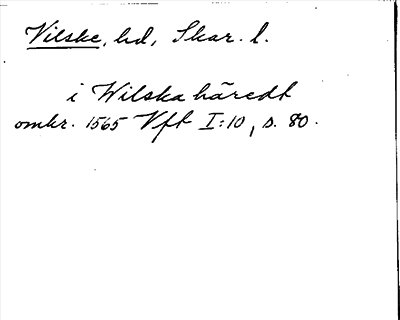 Vilske, hd, Skar. l.
i Wilska häredt
omkr. 1565 Vft I:10, s. 80.